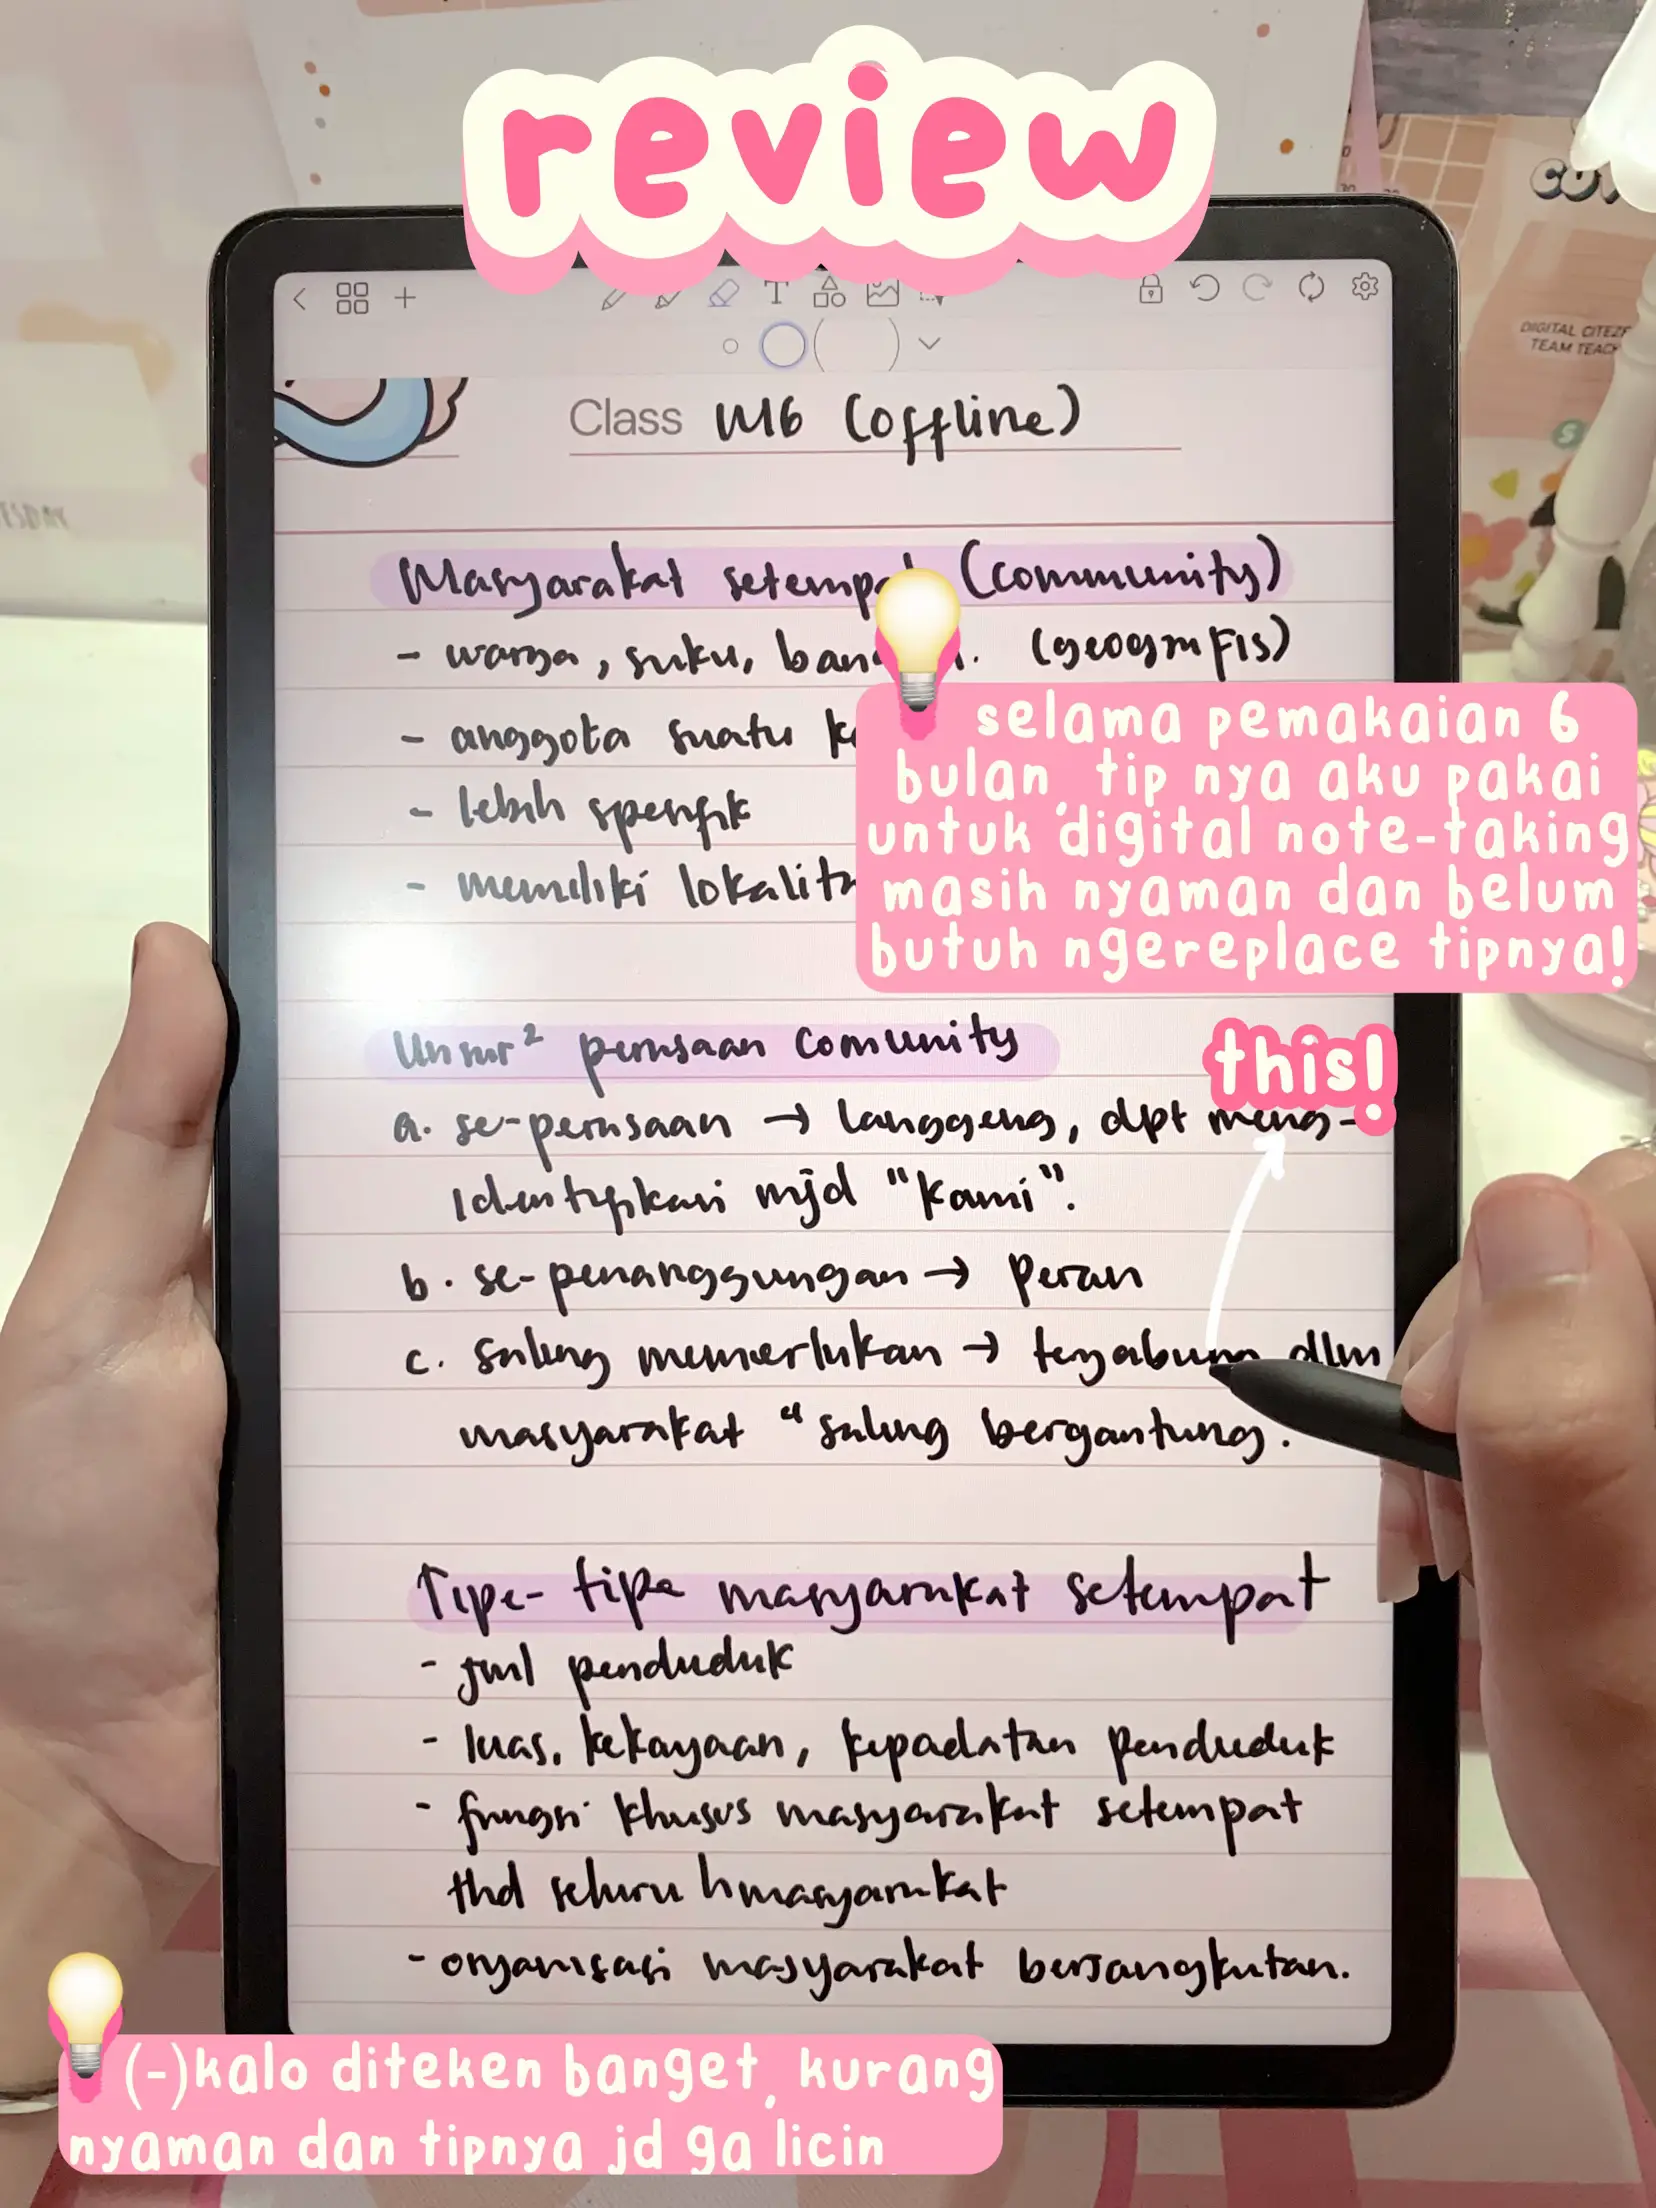 review
CUT
DIGITAL CITEZE
TEAM TEACH
ESDAY
Class M6 (offline)
Masyarakat setempat (community)
- warga, suku, (geografis)
- anggota suatu
- lebih spesifik
- memiliki
selama pemakaian 6
bulan, tip nya aku pakai
untuk digital note-taking
masih nyaman dan belum
butuh ngereplace tipnya!
Unsur² perasaan Comunity
this!
a. se-perasaan → langgeng, dpt meng-
identifikasi mjd "kami".
b. se-penanggungan → peran
c. saling memerlukan → dlm
masyarakat "saling bergantung.
Tipe-tipe masyarakat setempat
- jml penduduk
- luas, kekayaan, kepadatan penduduk
- fungsi khusus masyarakat setempat
thd seluruh masyarakat
- organisasi masyarakat bersangkutan.
(-)kalo diteken banget, kurang
nyaman dan tipnya jd ga licin